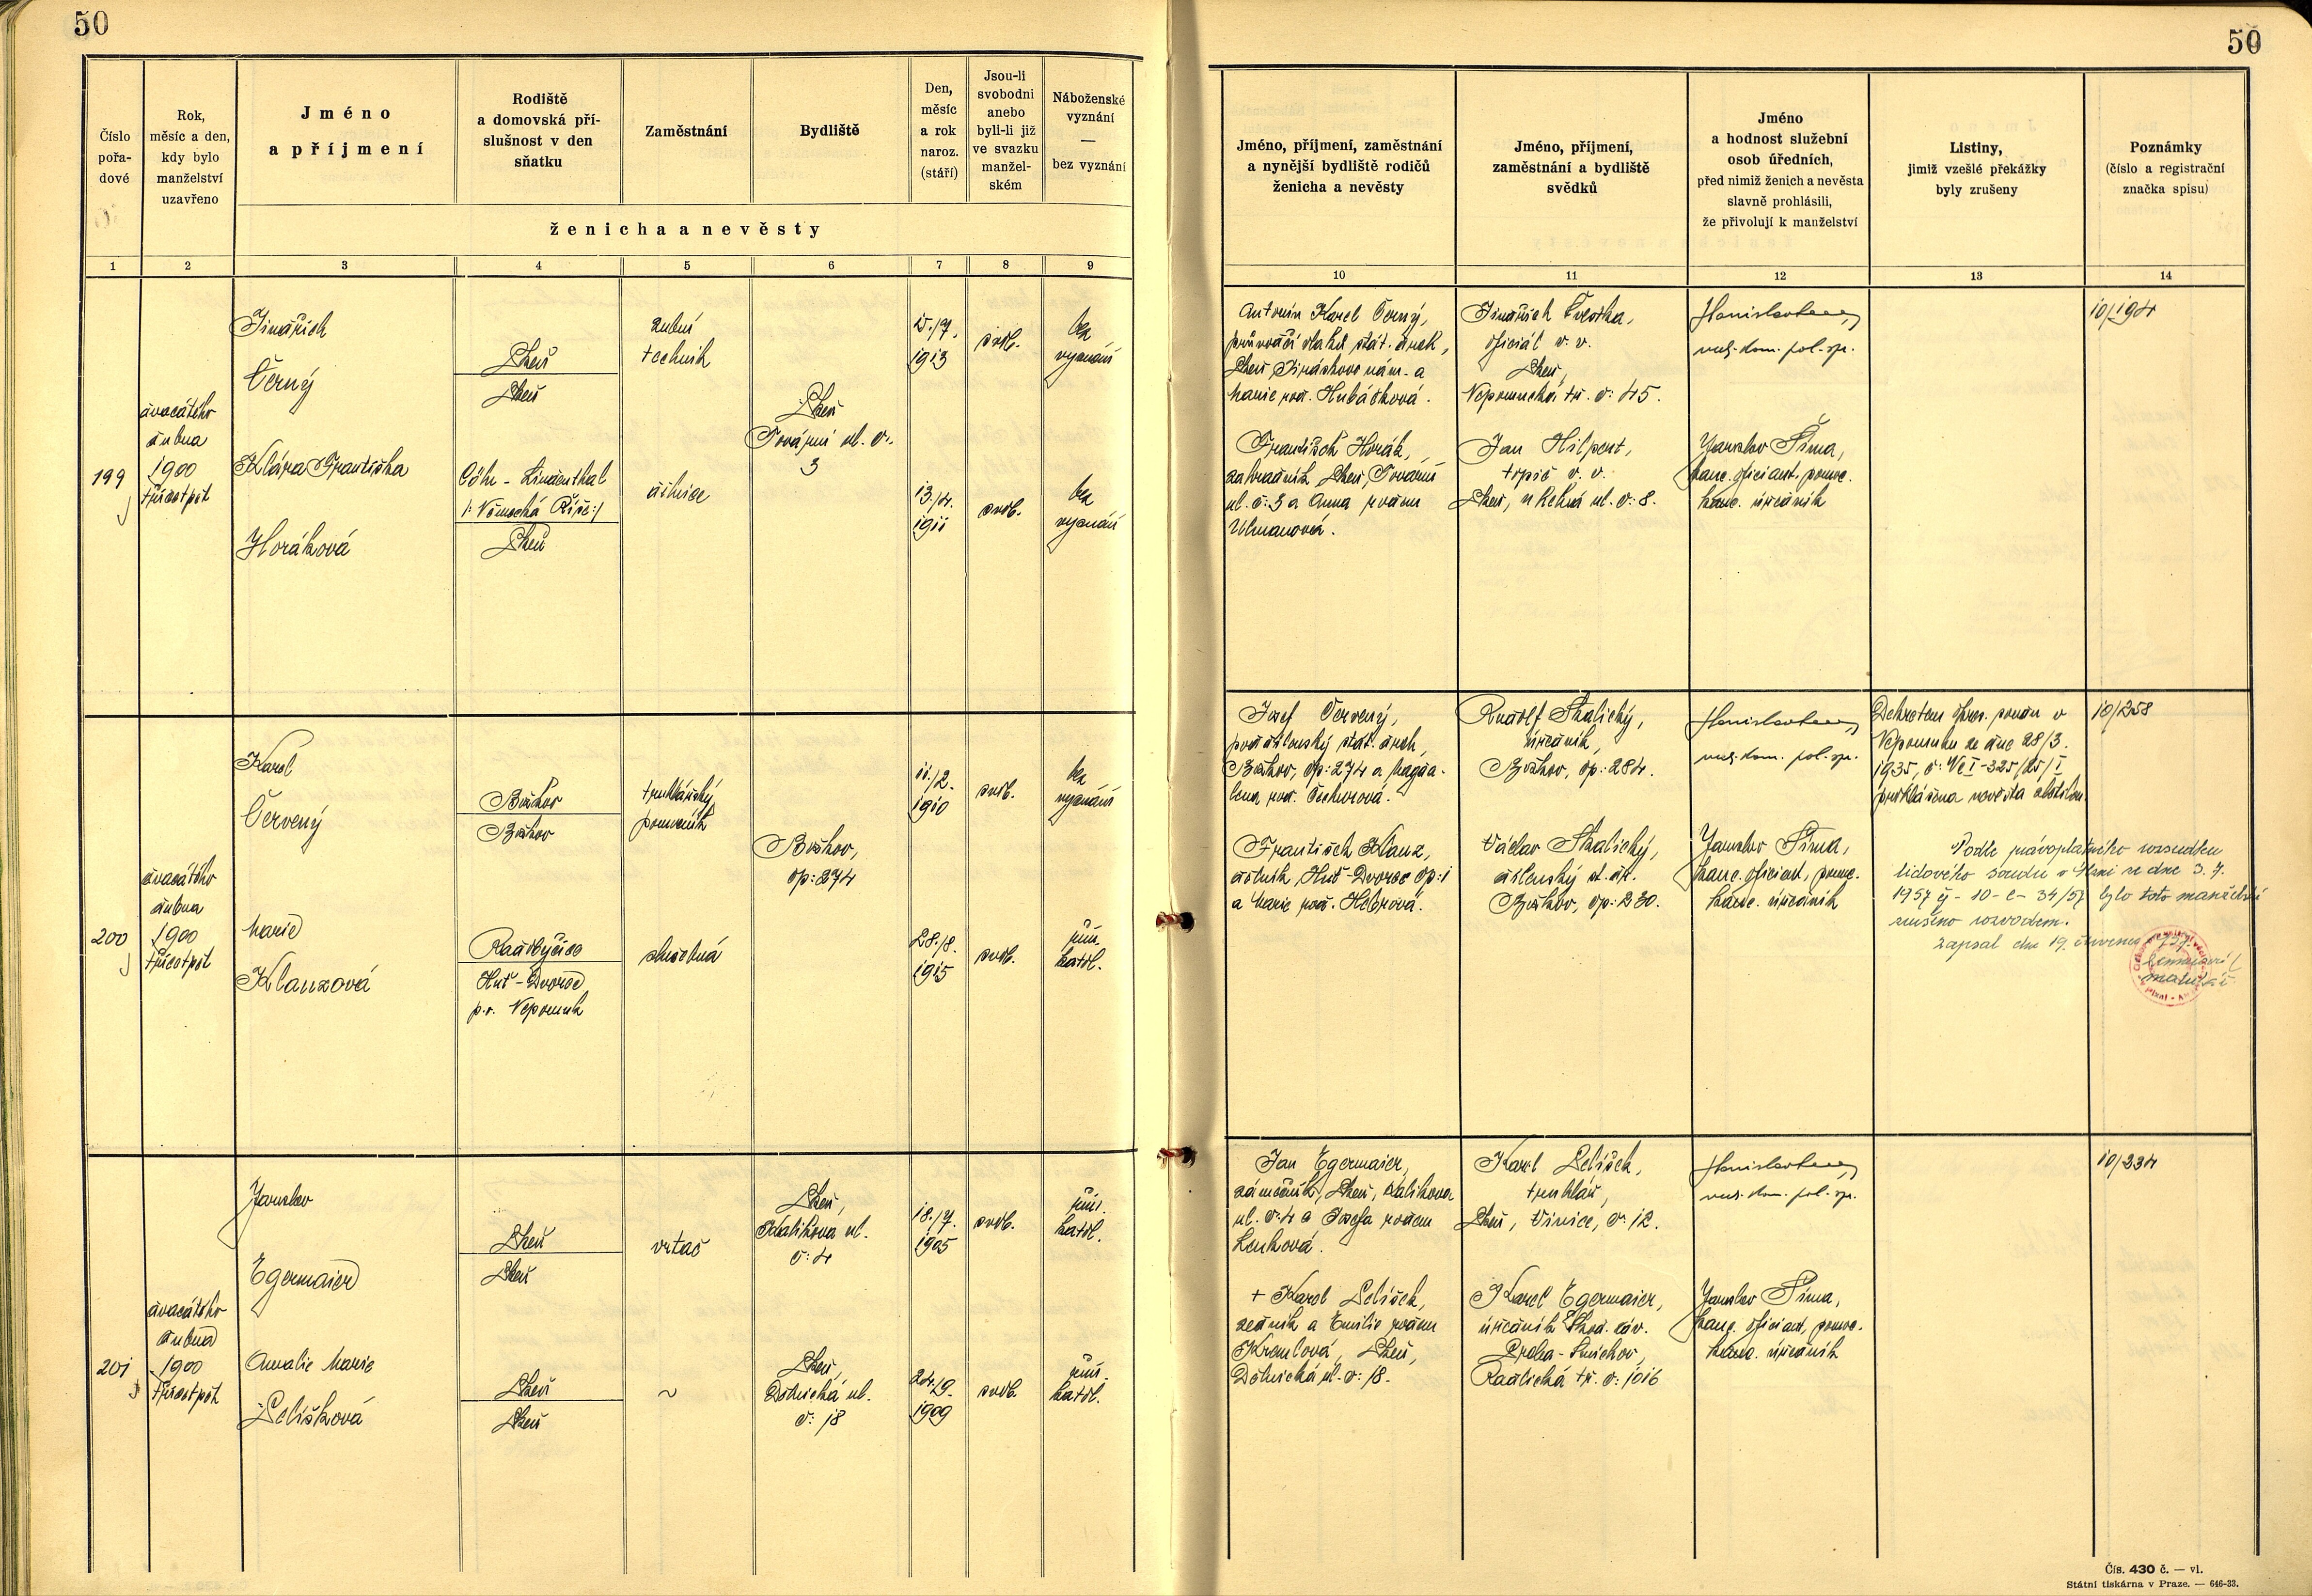 50
50
Číslo
pořa-
dové
Rok,
měsíc a den,
kdy bylo
manželství
uzavřeno
Jméno
a příjmení
Rodiště
a domovská pří-
slušnost v den
sňatku
Zaměstnání
Bydliště
Den,
měsíc
a rok
naroz.
(stáří)
Jsou-li
svobodni
anebo
byli-li již
ve svazku
manžel-
ském
Náboženské
vyznání
—
bez vyznání
ženicha a nevěsty
1 2 3 4 5 6 7 8 9
Jméno, příjmení, zaměstnání
a nynější bydliště rodičů
ženicha a nevěsty
Jméno, příjmení,
zaměstnání a bydliště
svědků
Jméno
a hodnost služební
osob úředních,
před nimiž ženich a nevěsta
slavně prohlásili,
že přivolují k manželství
Listiny,
jimiž vzešlé překážky
byly zrušeny
Poznámky
(číslo a registrační
značka spisu)
10 11 12 13 14
199
dvacátého
dubna
1900
třicetpět
Jindřich
Černý
Plzeň
Plzeň
zubní
technik
Plzeň
Tovární ul. č.
3
15./7.
1913
svob.
bez
vyznání
Klára Františka
Horáková
Cöln - Lindenthal
/: Německá Říše:/
Plzeň
dělnice
13./4.
1911
svob.
bez
vyznání
Antonín Karel Černý,
průvodčí vlaků stát. drah,
Plzeň, Jiráskovo nám. a
Marie roz. Hubáčková.
František Horák,
zahradník, Plzeň, Tovární
ul. č: 3 a Anna rozen
Ulmanová.
Jindřich
oficiál v. v.
Plzeň,
Nepomucká tř. č: 45.
Jan Hilpert,
topič v. v.
Plzeň, ul. č: 8.
Jaroslav Šíma,
kanc. oficiant, pomoc.
kanc. úředník
10/194
200
dvacátého
dubna
1900
třicetpět
Karel
Červený
Božkov
Božkov
truhlářský
pomocník
Božkov,
čp: 274
11./2.
1910
svob.
bez
vyznání
Marie
Klanzová
Huť-Dvorec
p. v. Nepomuk
služebná
28./8.
1915
svob.
řím.
katol.
Josef Červený,
stát. drah,
Božkov, čp: 274 a Magda-
lena roz.
František Klanz,
dělník, Huť-Dvorec čp: 1
a Marie roz.
Rudolf Skalický,
úředník,
Božkov, čp: 284.
Václav Skalický,
dělenský st. dr.
Božkov, čp: 230.
Jaroslav Šíma,
kanc. oficiant, pomoc.
kanc. úředník
Dekretem okres. soudu v
Nepomuku ze dne 28/3.
1935,
prohlášena nevěsta
10/258
Podle právoplatného rozsudku
lidového soudu v Plzni ze dne 3. 7.
1957 čj - 10-C-34/57 bylo toto manželství
zrušeno rozvodem.
Zapsal dne 19. července 1957.
201
dvacátého
dubna
1900
třicetpět
Jaroslav
Egermaier
Plzeň
Plzeň
vrtač
Plzeň,
Kalikova ul.
č: 4
18./7.
1905
svob.
řím.
katol.
Amalie Marie
Selišková
Plzeň
Plzeň
~
Plzeň,
Dělnická ul.
č: 18
24./9.
1909
svob.
řím.
katol.
Jan Egermaier,
zámečník, Plzeň, Kalikova
ul. č: 4 a Josefa rozen
Lenková.
+ Karel Selišek,
zedník a Emilie rozen
Plzeň,
Dělnická ul. č: 18.
Karel Selišek,
truhlář,
Plzeň, Vinice, č: 12.
Karel Egermaier,
úředník Škod. záv.
Praha-Smíchov,
Radlická tř. č: 1016
Jaroslav Šíma,
kanc. oficiant, pomoc.
kanc. úředník
10/234
Čís. 430 č. — vl.
Státní tiskárna v Praze. — 646-33.